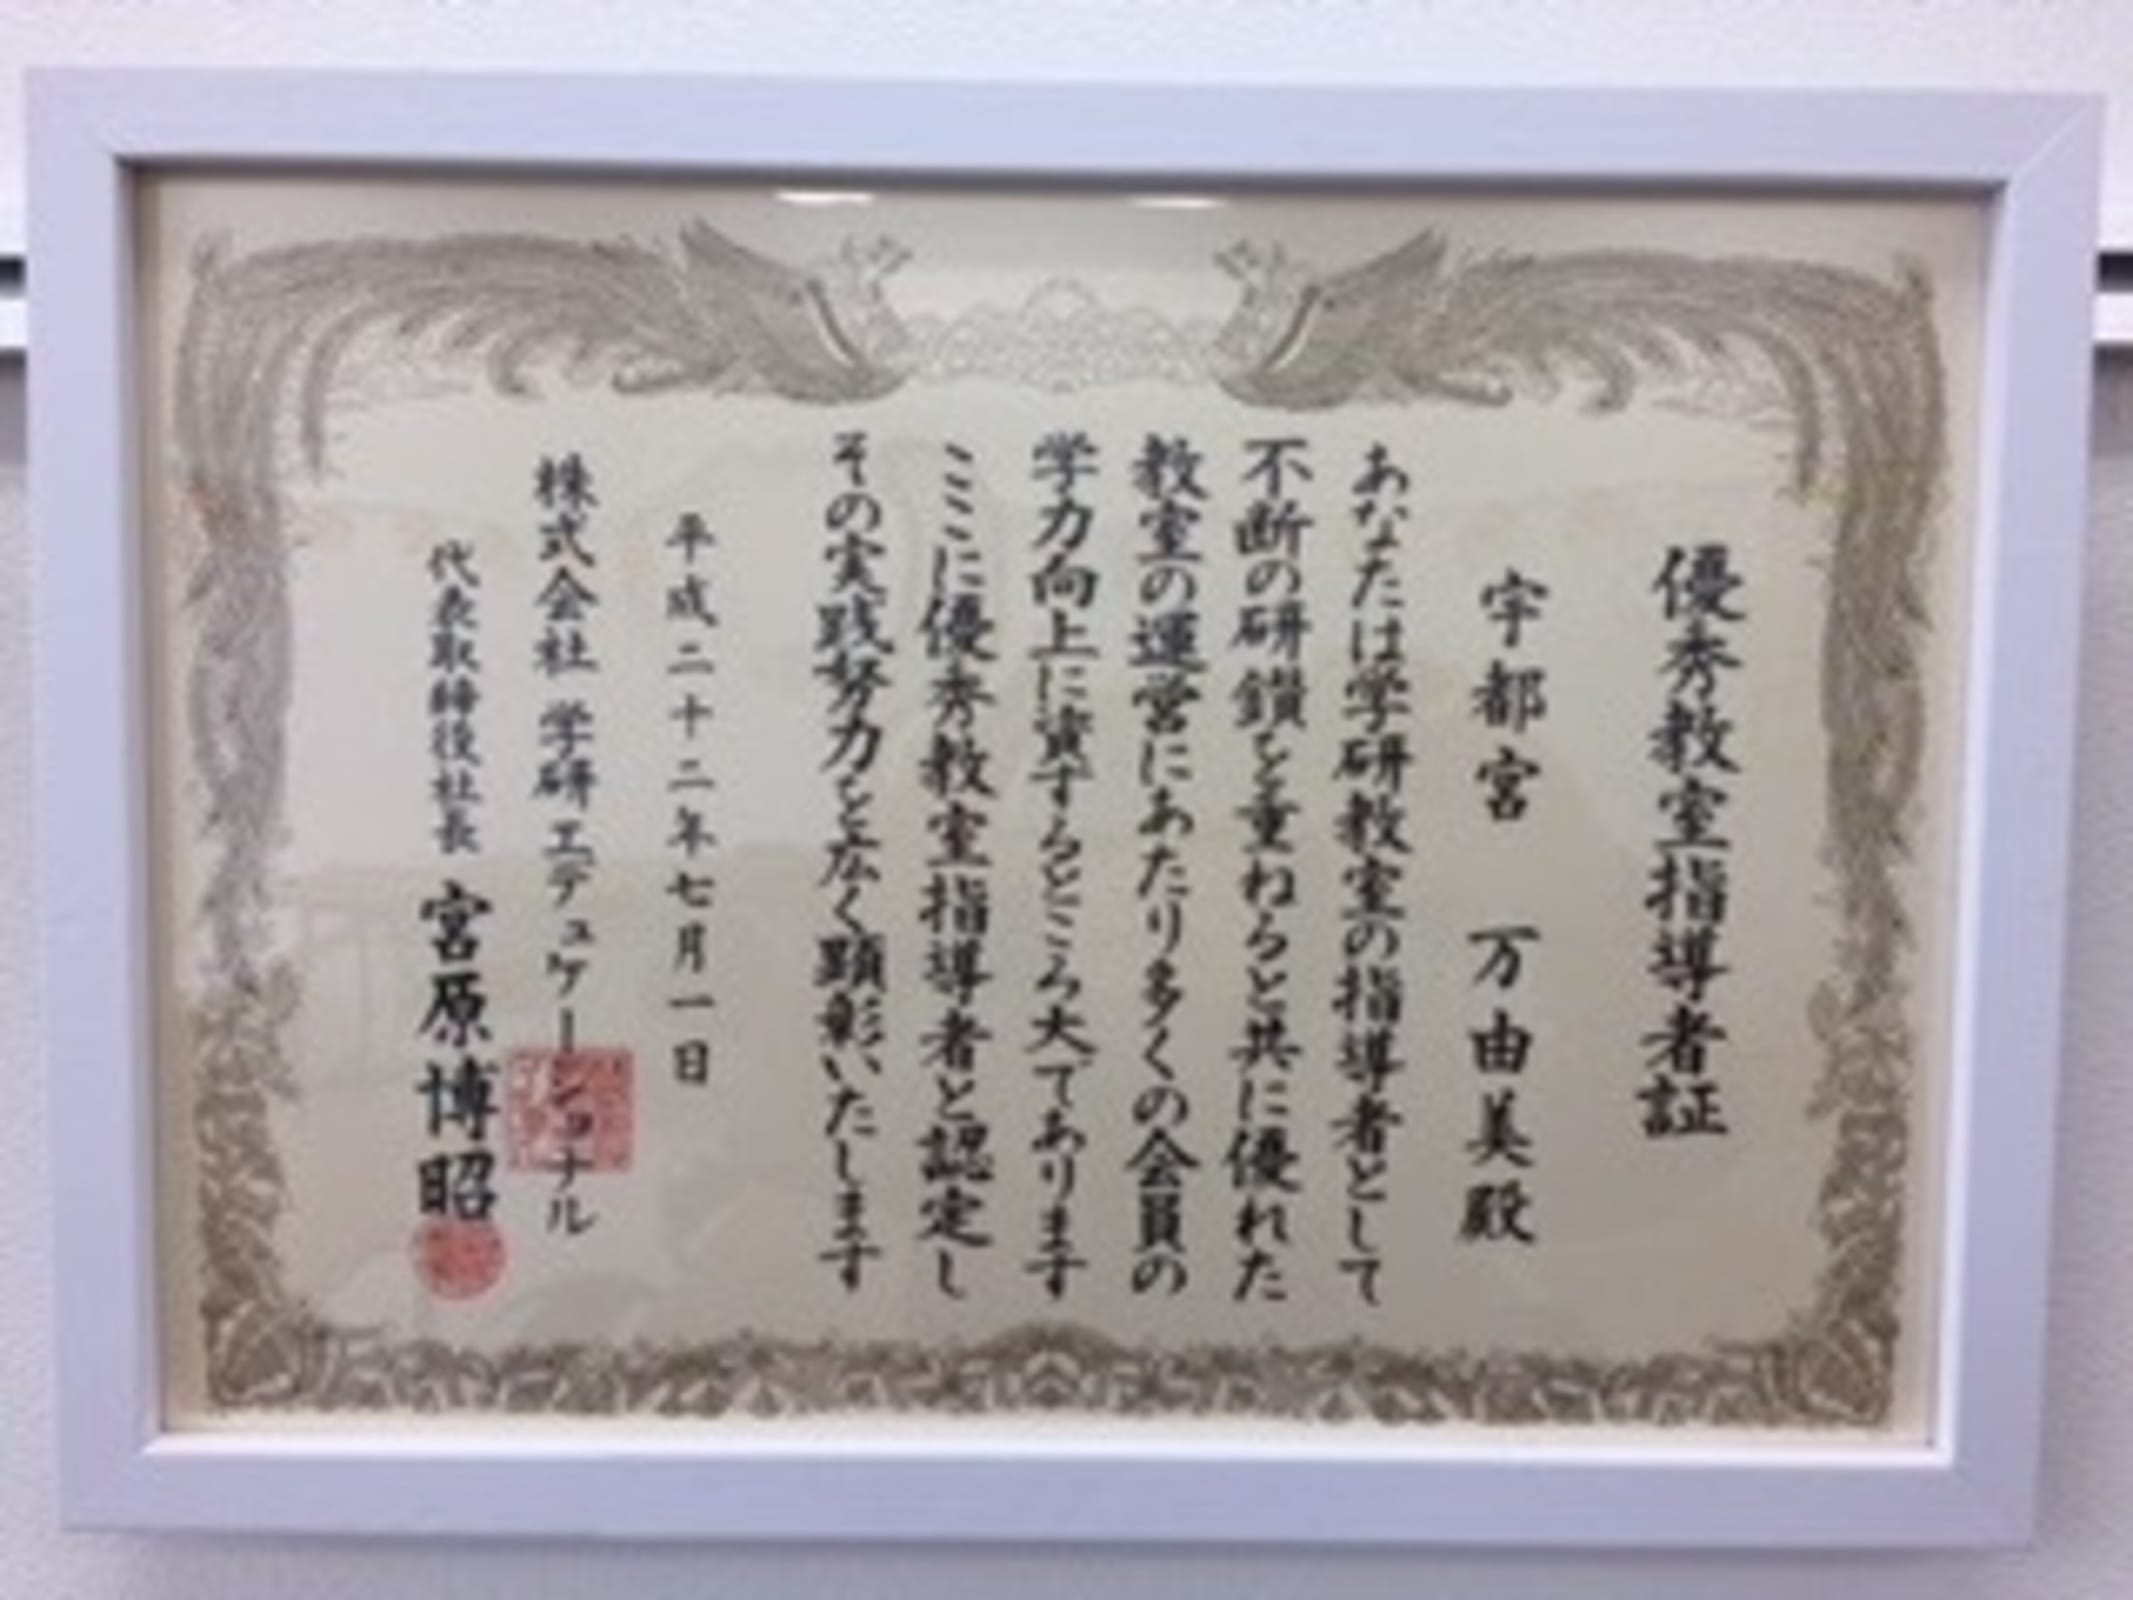 優秀教室指導者証
宇都宮 万由美 殿
あなたは学研教室の指導者として
不断の研鑽を重ねると共に優れた
教室の運営にあたり多くの会員の
学力向上に資するところ大であります
ここに優秀教室指導者と認定し
その実践努力を広く顕彰いたします
平成二十二年七月一日
株式会社 学研エデュケーショナル
代表取締役社長 宮原博昭